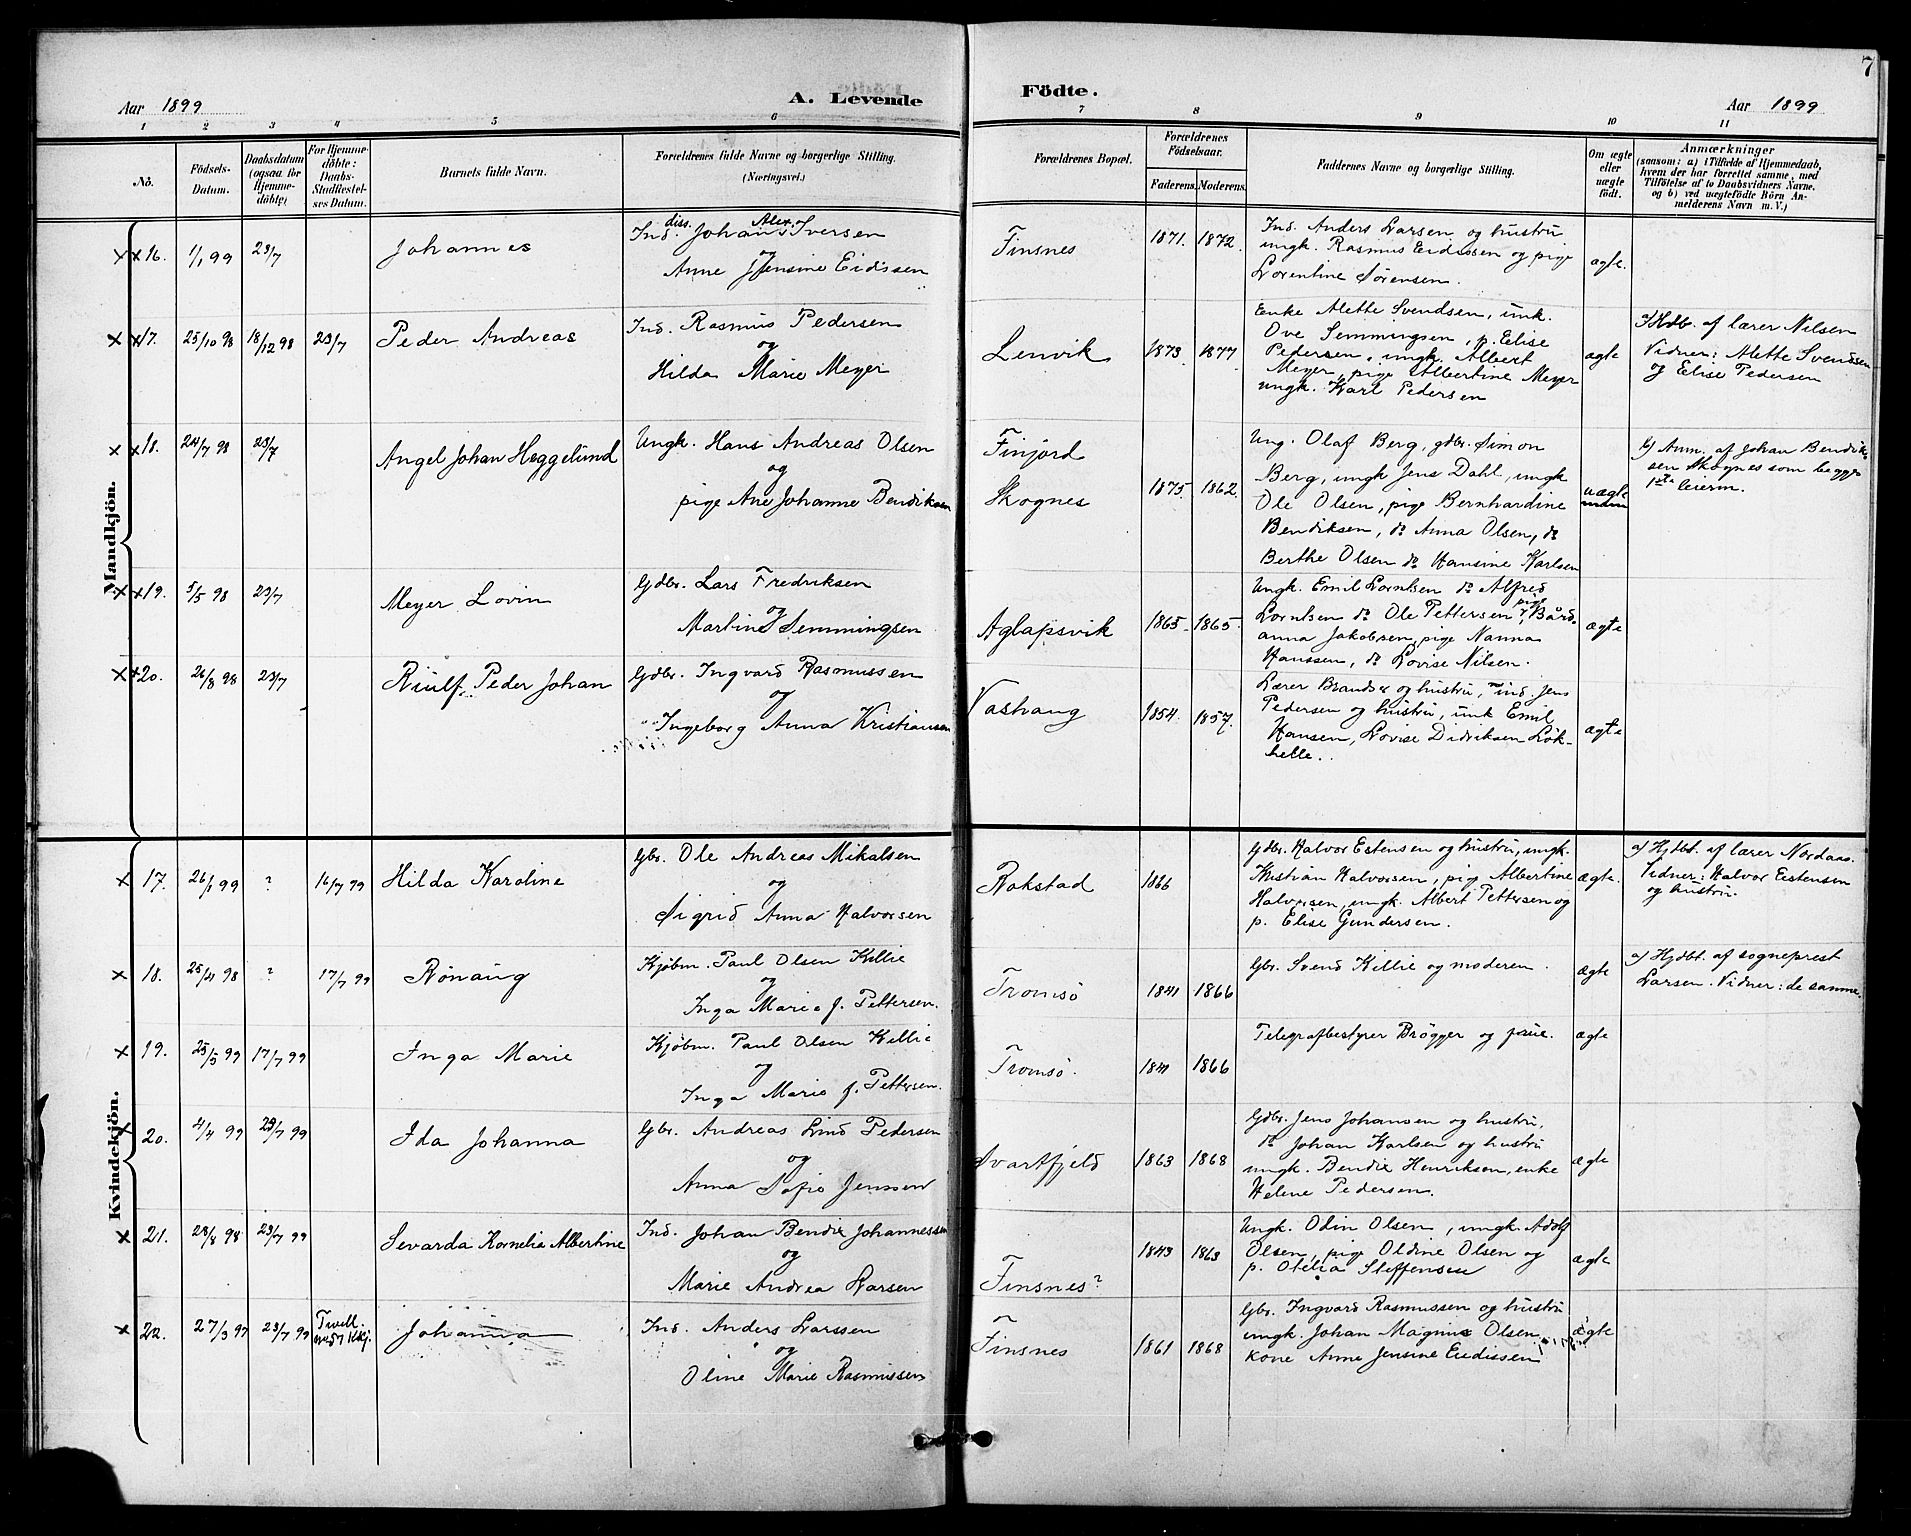 7
Aar 1899 A. Levende Födte. Aar 1899
1 2 3 4 5 6 7 8 9 10 11
No.
Födsels-
Datum.
Daabsdatum
(ogsaa for
Hjemme-
döbte)
For Hjemme-
döbte:
Daabs-
Stadfæstel-
ses Datum.
Barnets fulde Navn.
Forældrenes fulde Navne og borgerlige Stilling.
(Næringsvei.)
Forældrenes Bopæl.
Forældrenes
Födselsaar.
Faderens. Moderens.
Faddernes Navne og borgerlige Stilling.
Om ægte
eller
uægte
født.
Anmærkninger
(saasom: a) i Tilfælde af Hjemmedaab,
hvem der har forrettet samme, med
Tilföielse af to Daabsvidners Navne.
og b) ved uægtefödte Börn An-
melderens Navn m. V.)
Mandkjön.
x x 16. 1/1 99 23/7 Johannes
Ind. diss. Johan Alex. Iversen
og
Anne Jensine Eidissen
Finsnes 1871. 1872.
Ind. Anders Larsen og hustru.
ungk. Rasmus Eidissen og pige
Lorentine Sørensen.
ægte.
x x 17. 25/10 98 18/12 98 23/7 Peder Andreas
Ind. Rasmus Pedersen
og
Hilda Marie Meyer
Lenvik 1873. 1877.
Enke Alette Svendsen, unk.
Ove Semmingsen, p. Elise
Pedersen, ungk. Albert
Meyer, pige Albertine Meyer
ungk. Karl Pedersen
ægte
a) Hdb. af lærer Nilsen
Vidner: Alette Svendsen
og Elise Pedersen
x x 18. 24/7 98 23/7 Angel Johan Heggelund
Ungk. Hans Andreas Olsen
og
pige Ane Johanne Bendiksen
Finjord
Skognes
1875. 1862.
Ung. Olaf Berg, gdbr. Simon
Berg, ungk Jens Dahl, ungk
Ole Olsen, pige Bernhardine
Bendiksen, do Anna Olsen, do
Berthe Olsen do Hansine Karlsen
uægte
b) Anm. af Johan Bendik-
sen Skognes som begges
1ste leierm.
x x 19. 5/5 98 23/7 Meyer Lovin
Gdbr. Lars Fredriksen
og
Martine Semmingsen
Aglapsvik 1865. 1865.
Ungk. Emil Lorntsen do Alfred
Lorntsen do Ole Pettersen, pige Bård-
anna Jakobsen, pige Nanna
Hanssen, do Lovise Nilsen.
ægte
x x 20. 26/8 98 23/7 Riulf Peder Johan
Gdbr. Ingvard Rasmussen
og
Ingeborg Anna Kristiansen
Vashaug 1854. 1857.
Lærer Brandser og hustru, ind. Jens
Pedersen og hustru, unk Emil
Hansen, Lovise Didriksen Løk-
helle.
ægte
Kvindekjön.
x 17. 26/1 99 ? 16/7 99 Hilda Karoline
Gbr. Ole Andreas Mikalsen
og
Sigrid Anna Halvorsen
Rokstad 1866
Gdbr. Halvor Estensen og hustru, ungk.
Kristian Halvorsen, pige Albertine
Halvorsen, ungk. Albert Pettersen og
p. Elise Gundersen.
ægte.
a) Hjdbt. af lærer Nordaas.
Vidner: Halvor Estensen
og hustru.
x 18. 25/4 98 ? 17/7 99 Rönaug
Kjøbm. Paul Olsen Killie
og
Inga Marie f. Pettersen.
Tromsö 1841 1866
Gbr. Svend Killie og moderen.
ægte
a) Hjdbt. af sogneprest
Larsen. Vidner: de samme.
x 19. 25/5 99 17/7 99 Inga Marie
Kjøbm. Paul Olsen Killie
og
Inga Marie f. Pettersen.
Tromsö. 1841 1866
Telegrafbestyrer Brögger og frue.
ægte
x 20. 4/4 99 23/7 99 Ida Johanna
Gbr. Andreas Lind Pedersen
og
Anna Sofie Jensen
Svartfjeld 1863 1868
Gdbr. Jens Johansen og hustru,
do Johan Karlsen og hustru
ungk. Bendix Henriksen, enke
Helene Pedersen.
ægte
x 21. 28/8 98 23/7 99 Sevarda Kornelie Albertine
Ind. Johan Bendix Johannessen
og
Marie Andrea Larsen
Finsnes? 1843 1863
Ungk. Odin Olsen, ungk. Adolf
Olsen, pige Oldine Olsen og
p. Otelia Steffensen
ægte
x 22. 27/3 97 23/7 99 Tvill. Johanna
Ind. Anders Larssen
og
Oline Marie Rasmussen
Finsnes 1861 1868
Gbr. Ingvard Rasmussen og hustru
ungk. Johan Magnus Olsen
kone Anne Jensine Eidissen
ægte